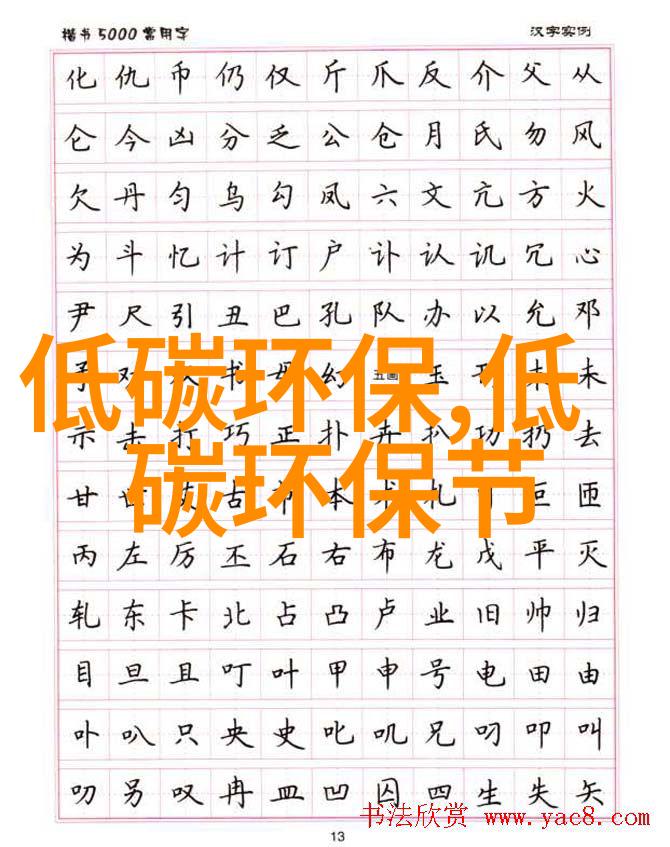 楷书5000常用字 汉字实例
化仇币仍仅斤爪反介父从
仑今凶分乏公仓月氏勿风
欠丹匀乌勾凤六文亢方火
为斗忆计订户讣认讥冗心
尹尺引丑巴孔队办以允邓
低碳环保,低
碳环保节
丙左厉丕石右布龙戊平灭
轧东卡北占凸卢业旧帅归
目旦且叮叶甲申号电田由
卟叭只央史叱叽兄叼叩叫
叻另叹冉皿凹囚四生失矢
书法欣赏 www.yac8.com
13